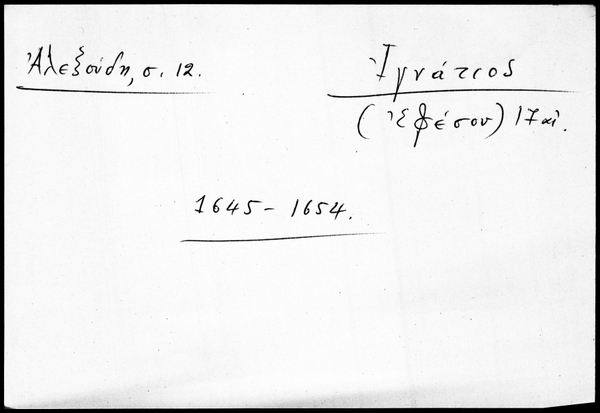 Ἀλεξούδη, σ. 12.
Ἰγνάτιος
(Ἐφέσου) 17 αἰ.
1645 - 1654.